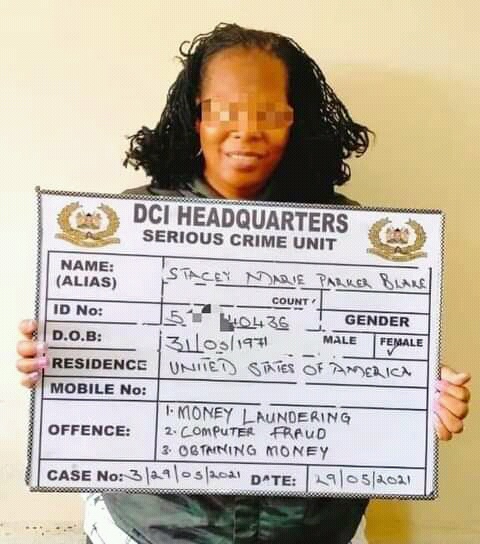 DCI HEADQUARTERS
SERIOUS CRIME UNIT
NAME: STACEY MARIE PARKER BLAKE
(ALIAS)
COUNT
ID No: 5 40436 GENDER
D.O.B: 31/05/1971 MALE FEMALE ✓
RESIDENCE UNITED STATES OF AMERICA
MOBILE No:
OFFENCE: 1. MONEY LAUNDERING
2. COMPUTER FRAUD
3. OBTAINING MONEY
CASE No: 3/29/05/2021 DATE: 29/05/2021